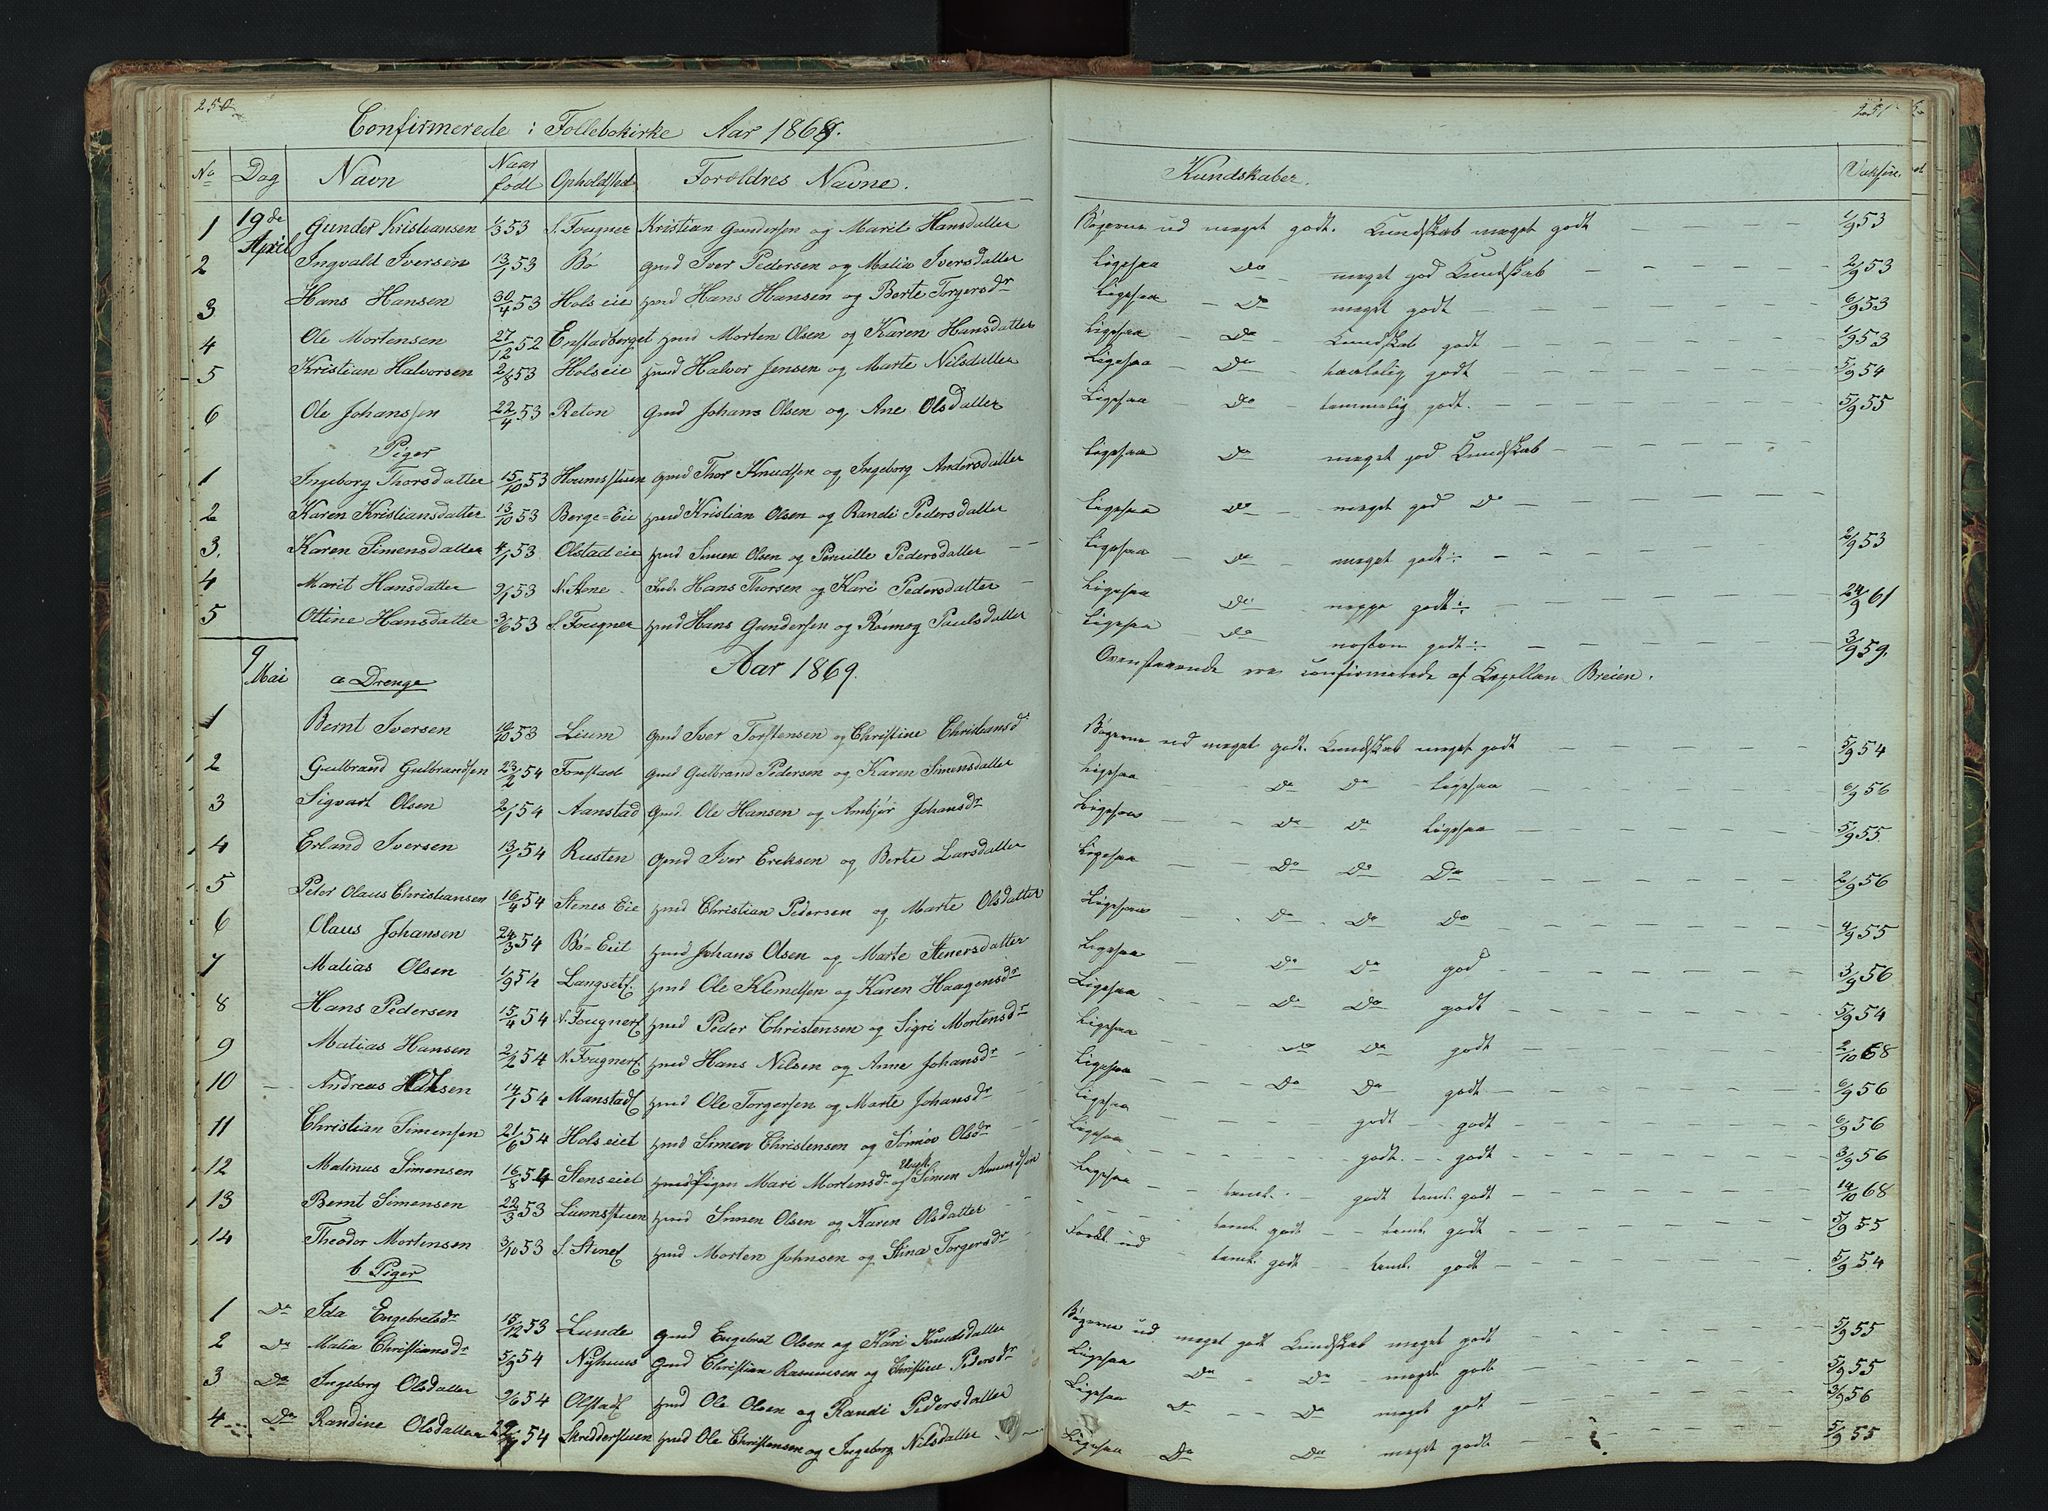 250
Confirmerede i Follebokirke Aar 1868.
No Dag Navn Naar født Opholdsted Forældres Navne.
1 19de April Gunder Kristiansen 1/3 53 S. Fougner Kristian Gundersen og Marit Hansdatter
2 Ingvald Iversen 13/1 53 Bø Gmd Iver Pedersen og Matia Iversdatter
3 Hans Hansen 30/4 53 Hols eie Hmd Hans Hansen og Berte Torgersdr
4 Ole Mortensen 27/12 52 Enstadberget Hmd Morten Olsen og Karen Hansdatter
5 Kristian Halvorsen 2/8 53 Hols eie Hmd Halvor Jensen og Marte Nilsdatter
6 Ole Johanssen 22/4 53 Reton Gmd Johans Olsen og Ane Olsdatter
Piger
1 Ingeborg Thorsdatter 15/10 53 Houmsstuen Gmd Thor Knudsen og Ingeborg Andersdatter
2 Karen Kristiansdatter 13/10 53 Berge=Eie Hmd Kristian Olsen og Randi Pedersdatter
3. Karen Simensdatter 4/1 53 Olstad eie Hmd Simen Olsen og Pernille Pedersdatter
4 Marit Hansdatter 9/1 53 N. Stene Hans Thorsen og Kari Pedersdatter
5 Ottine Hansdatter 3/6 53 S. Fougner Hmd Hans Gundersen og Rønnog Paulsdatter
9 Mai a Drenge Aar 1869.
1 Bernt Iversen 10/10 53 Lium Gmd Iver Torstensen og Christine Christiansdr
2 Gulbrand Gulbrandsen 23/2 54 Fonstad Gmd Gulbrand Pedersen og Karen Simensdatter
3 Sigvart Olsen 2/1 54 Aanstad Gmd. Ole Hansen og Ambjør Johansdr
4 Erland Iversen 13/1 54 Rusten Gmd Iver Eriksen og Berte Larsdatter
5 Peter Olaus Christiansen 16/4 54 Stenes Eie Hmd Christian Pedersen og Marte Olsdatter
6 Olaus Johansen 24/3 54 Bø=Eit Hmd Johans Olsen og Marte Stenersdatter
7 Matias Olsen 1/9 54 Langset Hmd Ole Klemetsen og Karen Haagensdr
8 Hans Pedersen 15/4 54 N. Fougner Hmd Peder Christensen og Sigri Mortensdr
9 Matias Hansen 2/2 54 N. Fougner Hmd Hans Nilsen og Anne Johansdr
10 Andreas Olsen 14/1 54 Manstad Hmd Ole Torgersen og Marte Johansdr
11 Christian Simensen 21/6 54 Hols eiet Hmd Simen Christensen og Simøv Olsdr
12 Matinus Simensen 16/8 54 Stens eiet Pigen Mari Mortensdr og Simen Amundsen
13 Bernt Simensen 22/3 53 Liumsstuen Hmd Simen Olsen og Karen Olsdatter
14 Theodor Mortensen 3/10 53 S. Stene Hmd Morten Johnsen og Stina Torgersdr
b Piger
1 Do Ida Engebretsdr 15/12 53 Lunde Gmd Engebret Olsen og Kari Knudsdatter
2 Do Matia Christiansdr 5/9 54 Nyhuus Gmd Christian Rasmussen og Christine Pedersdr
3 Do Ingeborg Olsdatter 9/6 54 Olstad Hmd Ole Olsen og Randi Pedersdatter
4 Do Randine Olsdatter 29/7 54 Skredderstuen Hmd Ole Christensen og Ingeborg Nilsdatter
251
Kundskaber. Vaksine.
Bøgerne ud meget godt. Kundskab meget godt 1/9 53
Ligesaa Do meget god Kundskab 2/9 53
Ligesaa Do meget godt 6/9 53
Ligesaa Do Kundskab godt 1/9 53
Ligesaa Do taalelig godt 5/9 54
Ligesaa Do temmelig godt. 5/9 55
Ligesaa Do meget god Kundskab
Ligesaa Do meget god Do
Ligesaa Do meget godt 2/9 53
Ligesaa Do neppe godt 24/9 61
Ligesaa Do næsten godt 3/9 59.
Ovenstaaende ere confirmerede af Kapellan Breien.
Bøgerne ud meget godt. Kundskab meget godt 5/9 54
Ligesaa Do Do Ligesaa 6/9 56
Ligesaa Do Do Ligesaa 5/9 55
Ligesaa Do Do Do 2/9 56
Ligesaa Do Do Do 4/9 55
Ligesaa Do Do god 3/9 56
Ligesaa Do Do godt 5/9 54
Ligesaa Do Do godt 2/10 68
Ligesaa Do Do godt 6/9 56
Ligesaa godt godt 6/9 56
Ligesaa godt godt 3/9 56
Ligesaa teml. godt teml. godt 14/10 68
teml. godt teml. godt 5/9 55
ud teml. godt teml. godt 5/9 54
Bøgerne ud meget godt Kundskab meget godt 5/9 55
Ligesaa Do Do meget godt 5/9 55
Ligesaa Do Do meget godt 3/9 56
Ligesaa Do Do meget godt 5/9 55